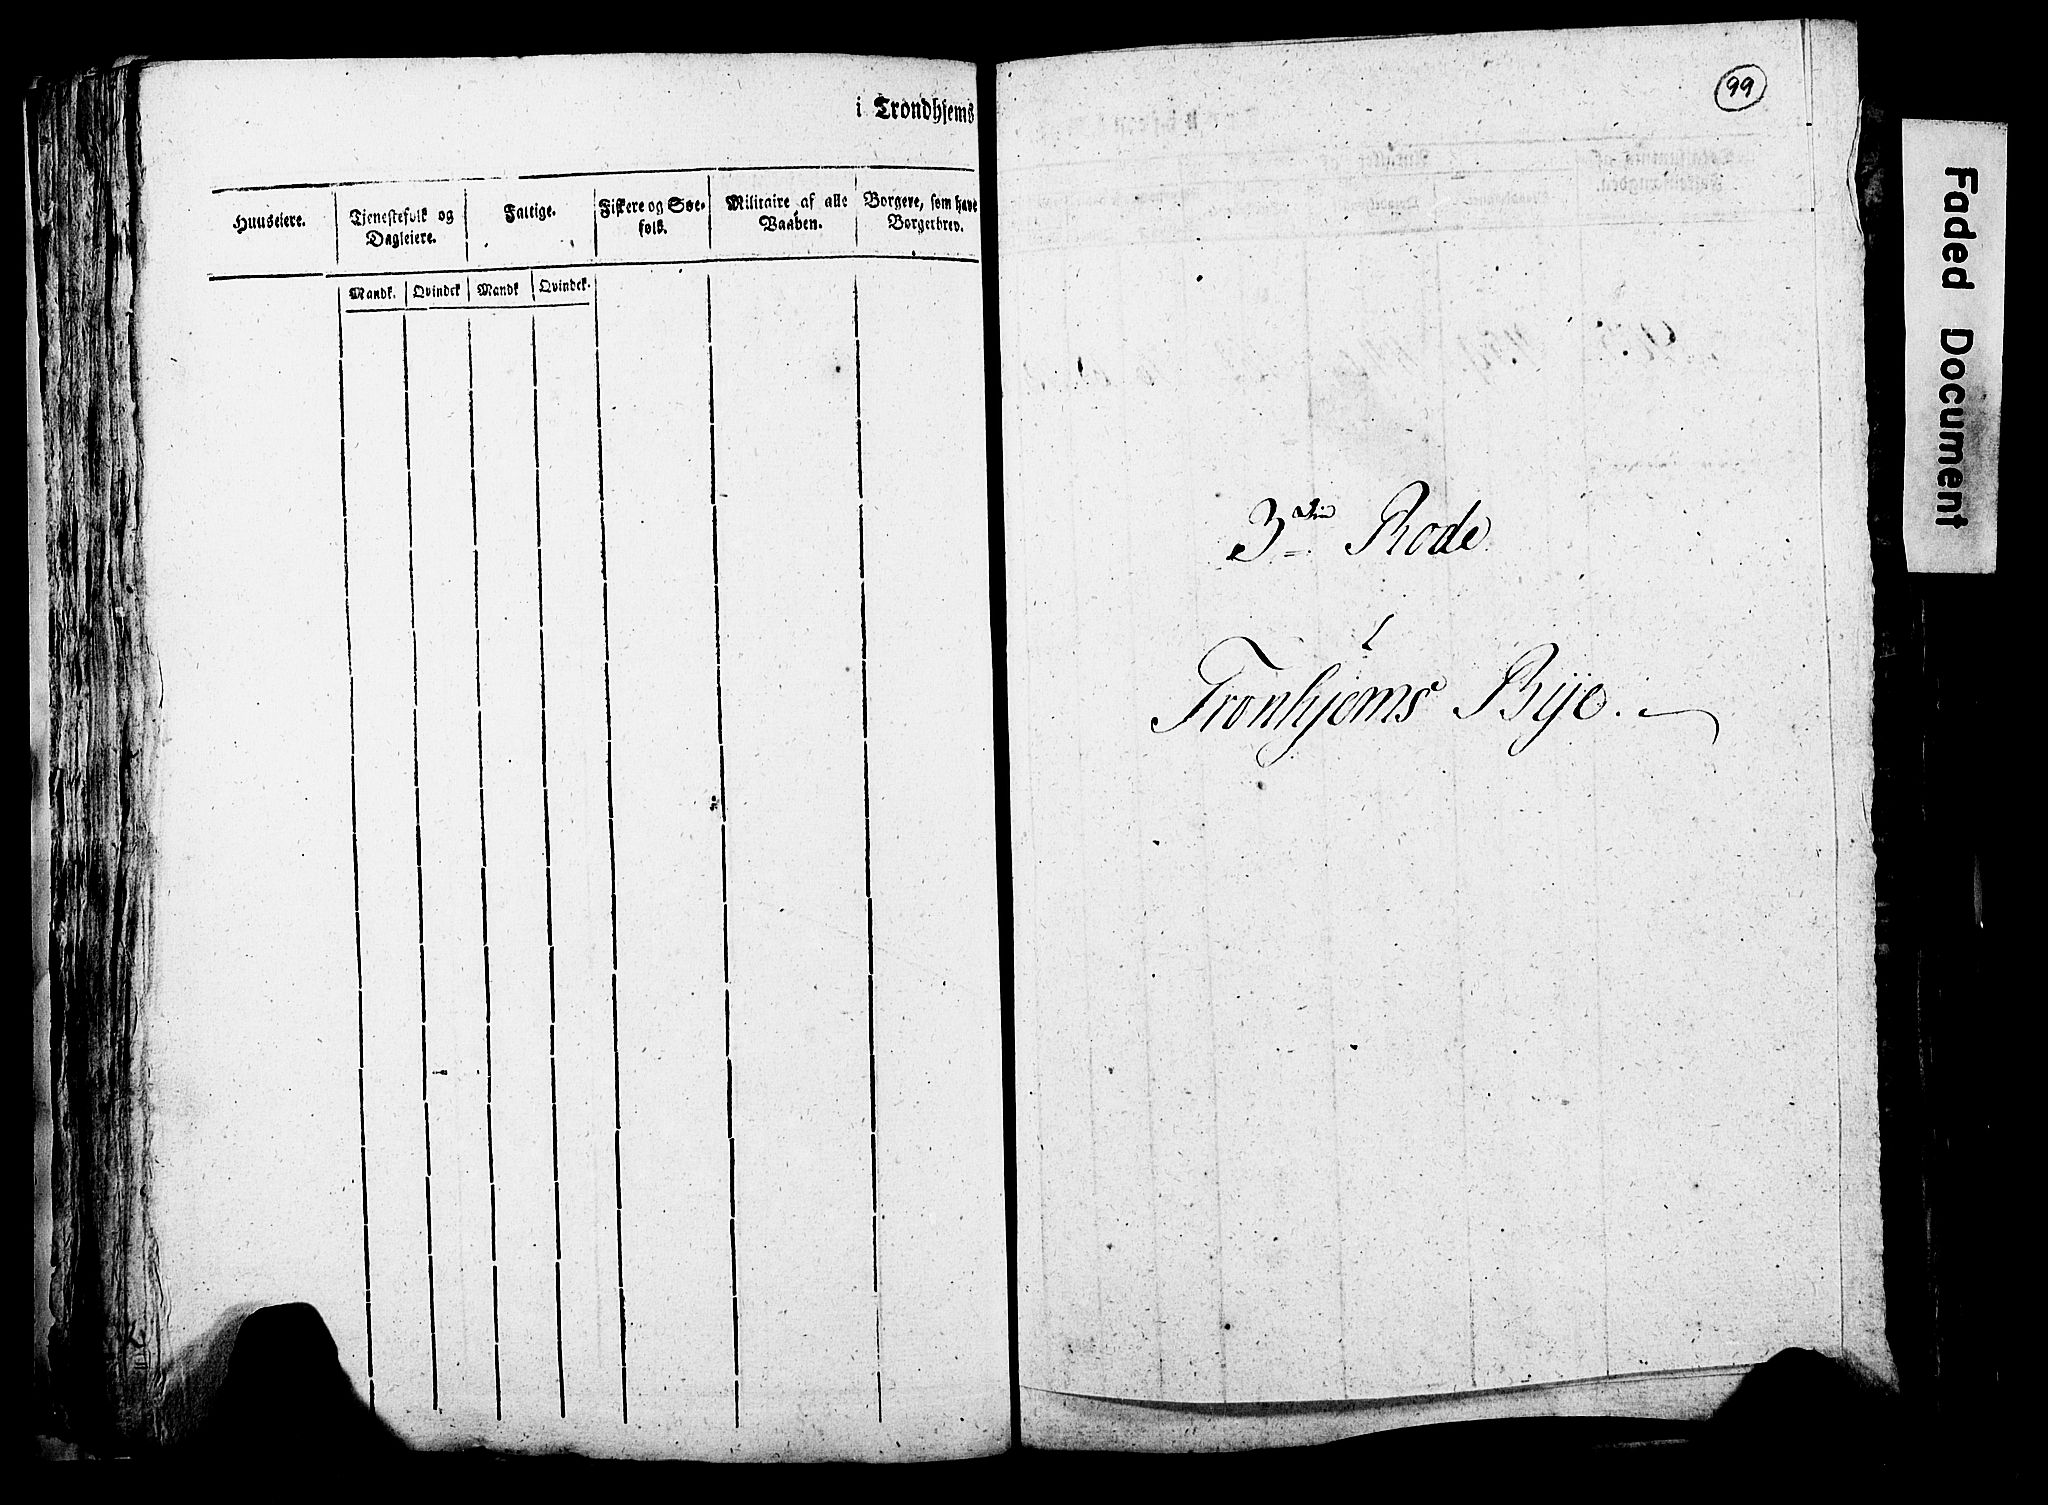 i Trondhjems
Huuseiere.
Tjenestefolk og
Dagleiere.
Fattige.
Fiskere og Søe-
folk.
Militaire af alle
Vaaben.
Borgere, som have
Borgerbrev.
Mandk. Qvindek Mandk Qvindek.
99
3die Rode
i
Tronhjems Bije.
Faded Document